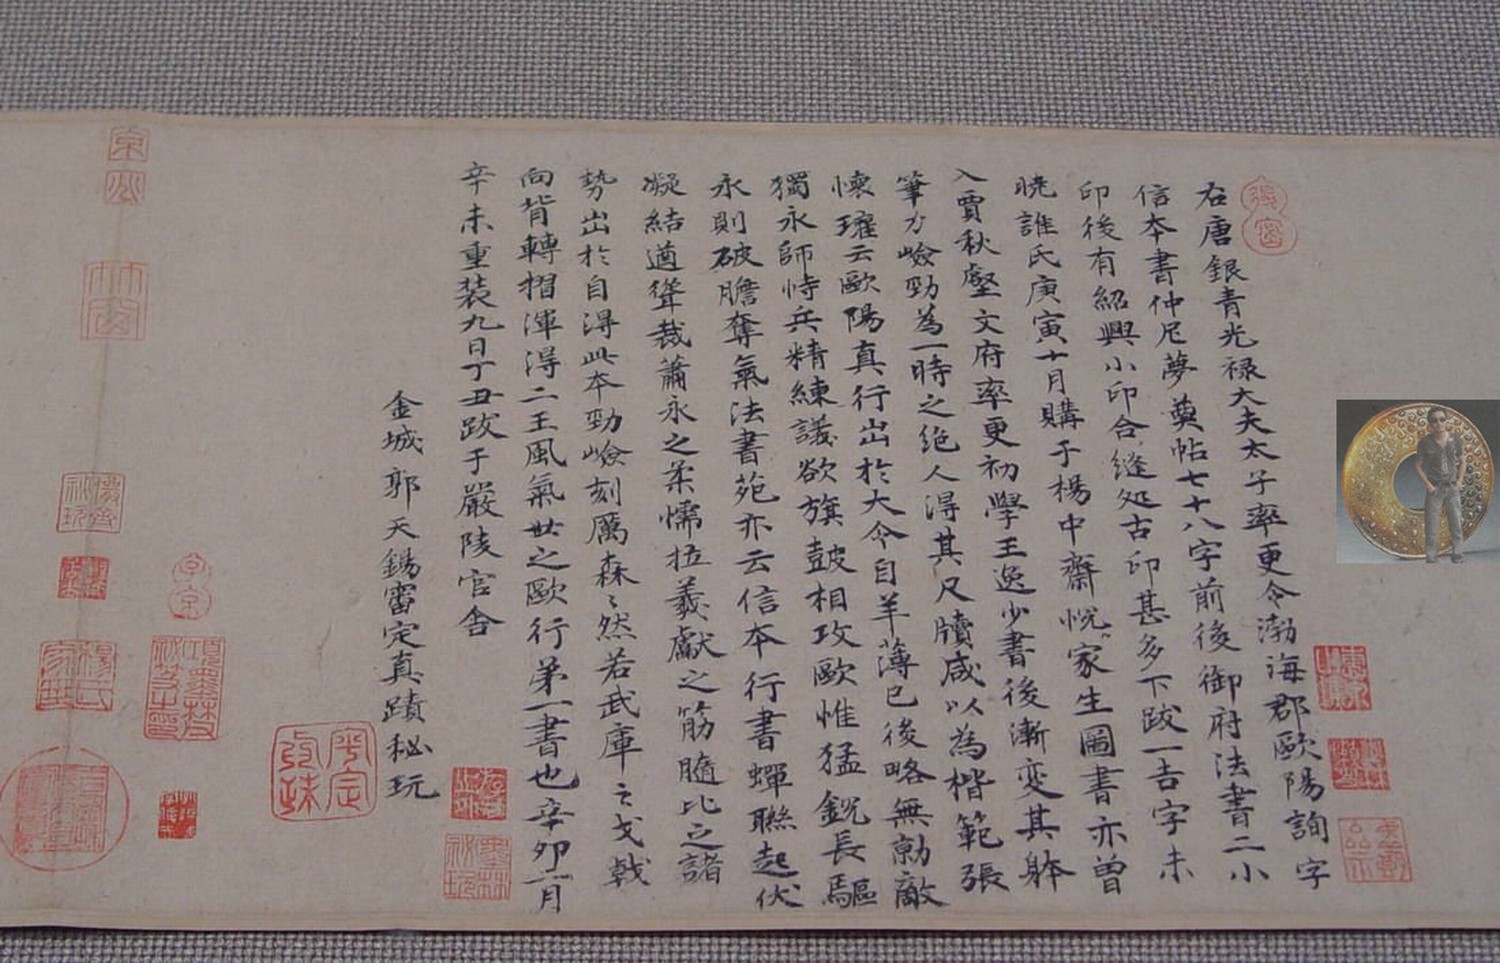 右唐銀青光禄大夫太子率更令渤海郡歐陽詢字
信本書仲尼夢奠帖七十八字前後御府法書二小
印後有紹興小印合縫処古印甚多下跋一古字未
曉誰氏庚寅十月購于楊中齋悅家生圖書亦曾
入賈秋壑文府率更初學王逸少書後漸変其躰
筆力嶮勁為一時之绝人得其尺牘咸以為楷範張
懷瓘云歐陽真行出於大令自羊薄已後略無勍敵
獨永師恃兵精練議欲旗鼓相攻歐惟猛銳長驅
永則破膽奪氣法書苑亦云信本行書蟬聯起伏
凝結遒聳裁蕭永之柔懦拉羲獻之筋髓比之諸
勢出於自得此本勁嶮刻厲森〻然若武庫之戈戟
向背轉摺渾得二王風氣世之歐行第一書也辛卯二月
辛未重装九日丁丑跋于嚴陵官舎
金城郭天錫審定真蹟秘玩